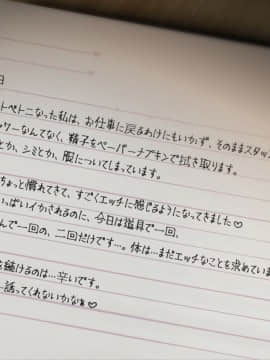 日
トベトになった私は、お仕事に戻るわけにもいかず、そのままスタッ
ワーなんてなく、精子をペーパーナプキンで拭き取ります。
とか、シミとか、服についてしまっています。
ちょっと慣れてきて、すごくエッチに感じるようになってきました♡
いっぱいイかされるのに、今日は道具で一回、
んで一回の、二回だけです…。体は…まだエッチなことを求めていま
を続けるのは…辛いです。
誘ってくれないかなぁ♡